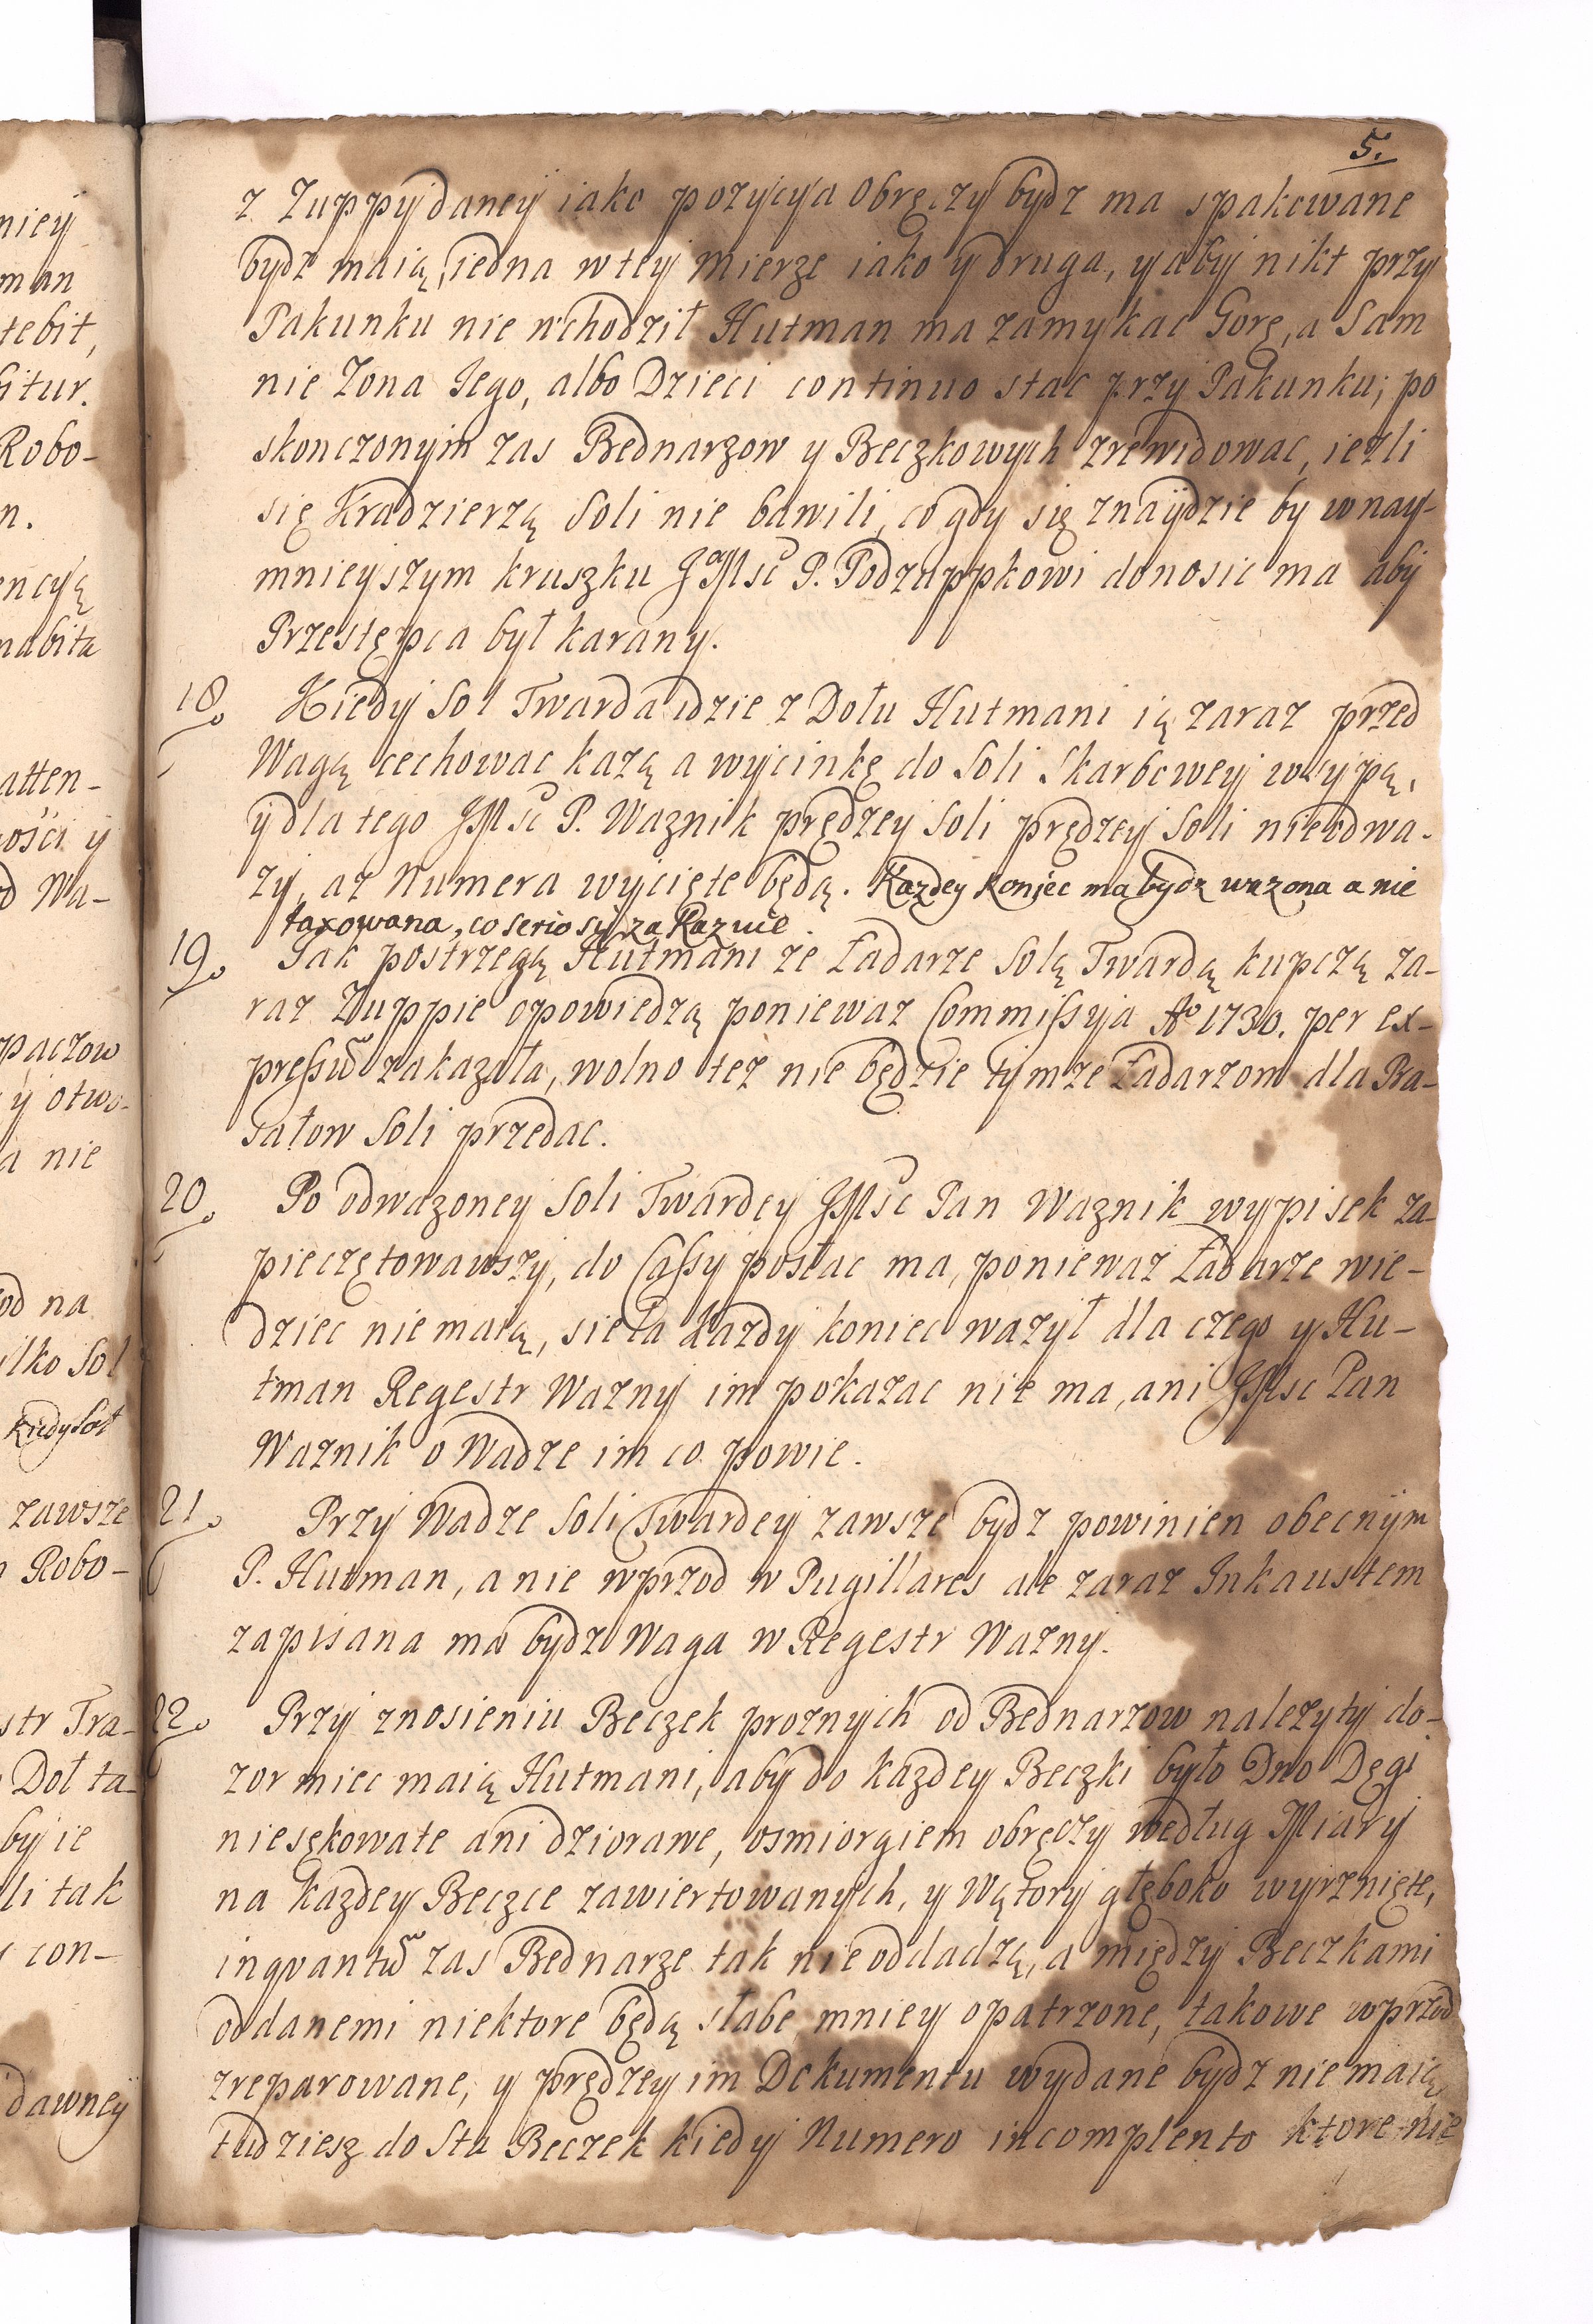 5.
z Zuppy daney iako pozycya Obręczy bydz ma spakowane
bydz maią, iedna w tey mierze iako y druga, y aby nikt przy
Pakunku nie wchodził Hutman ma zamykac Gorę, a Sam
nie Zona Iego, albo Dzieci continuo stac przy Pakunku; po
skonczonym zas Bednarzow y Beczkowych zrewidowac, iezli
się Kradzierzą Soli nie bawili, co gdy się znaydzie by w nay-
mnieyszym kruszku JMsć P. Podzuppkowi donosic ma aby
Przestępca był karany.
18o Kiedy Sol Twarda idzie z Dołu Hutmani ią zaraz przed
Wagą cechowac kazą a wycinkę do Soli Skarbowey wsypą,
y dla tego JMsć P. Waznik prędzey Soli prędzey Soli nieodwa-
zy, az Numera wycięte będą. Kazdey koniec ma bydz wazona a nie
taxowana, co serio się za Kazuie.
19o Iak postrzegą Hutmani ze Ładarze Solą Twardą kupczą za-
raz Zuppie opowiedzą poniewaz Commissya Ao 1730. per ex-
pressũ zakazała, wolno tez nie będzie tymze Ładarzom dla Ba-
sałow Soli przedac.
20o Po odwazoney Soli Twardey JMsć Pan Waznik wypisek za-
pieczętowawszy, do Cassy posłac ma, poniewaz Ładarze wie-
dziec nie maią, sieła kazdy koniec wazył dla czego y Hu-
tman Regestr Wazny im pokazac nie ma, ani JMsc Pan
Waznik o Wadze im co powie.
21o Przy Wadze Soli Twardey zawsze bydz powinien obecnym
P. Hutman, a nie wprzod w Pugillares ale zaraz Inkaustem
zapisana ma bydz Waga w Regestr Wazny.
22o Przy znosieniu Beczek proznych od Bednarzow nalezyty do-
zor miec maią Hutmani, aby do kazdey Beczki było Dno Dęgi
niesękowate ani dziorawe, osmiorgiem obręczy według Miary
na kazdey Beczce zawiertowanych, y Wątory głęboko wyrznięte,
inqvantũ zas Bednarze tak nie oddadzą, a między Beczkami
oddanemi niektore będą słabe mniey opatrzone, takowe wprzod
zreparowane, y prędzey im Dokumentu wydane bydz nie maią,
tudziesz do Sta Beczek kiedy Numero incomplento ktore nie